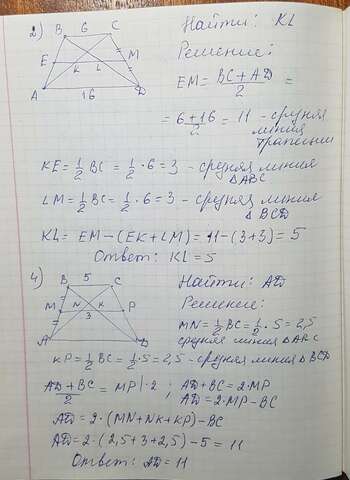 2) B 6 C Найти: KL
E K L M
A 16 D
Решение:
EM = BC + AD / 2 =
= 6+16 / 2 = 11 - средняя
линия
трапеции
KE = 1/2 BC = 1/2 · 6 = 3 - средняя линия
△ABC
LM = 1/2 BC = 1/2 · 6 = 3 - средняя линия
△BCD
KL = EM - (EK + LM) = 11 - (3+3) = 5
Ответ: KL = 5
4) B 5 C Найти: AD
M N K P
3
A D
Решение:
MN = 1/2 BC = 1/2 · 5 = 2,5
средняя линия △ABC
KP = 1/2 BC = 1/2 · 5 = 2,5 - средняя линия △BCD
AD + BC / 2 = MP | · 2 ; AD + BC = 2 · MP
AD = 2 · MP - BC
AD = 2 · (MN + NK + KP) - BC
AD = 2 · (2,5 + 3 + 2,5) - 5 = 11
Ответ: AD = 11